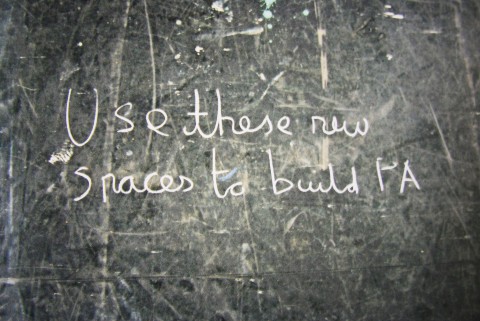 Use these new
spaces to build PA